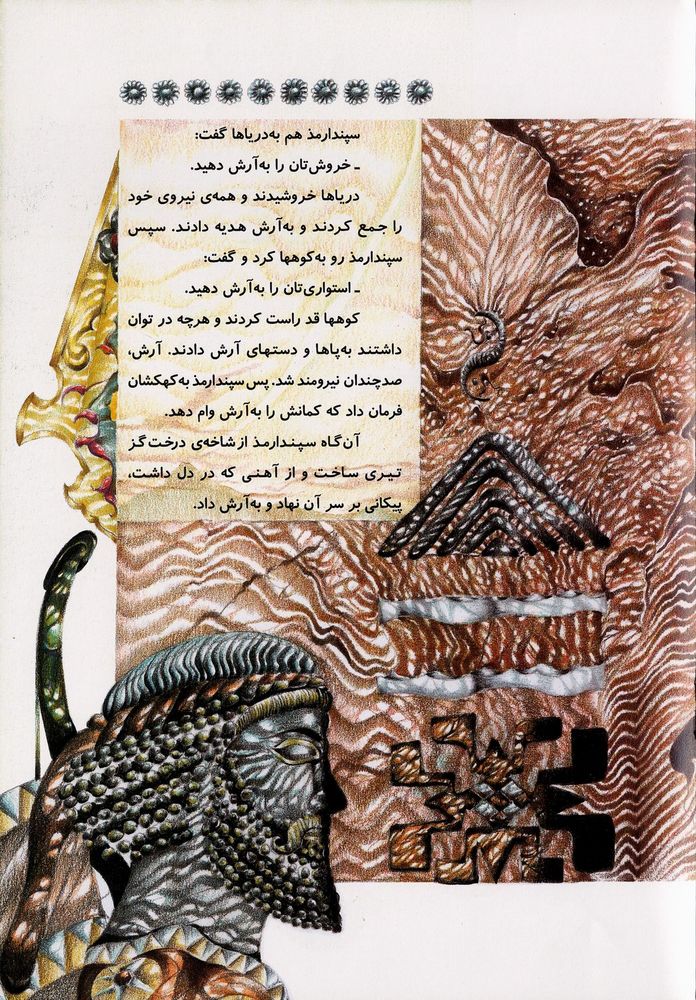 سپندارمذ هم به‌دریاها گفت:
ـ خروش‌تان را به‌آرش دهید.
دریاها خروشیدند و همه‌ی نیروی خود
را جمع کردند و به‌آرش هدیه دادند. سپس
سپندارمذ رو به‌کوهها کرد و گفت:
ـ استواری‌تان را به‌آرش دهید.
کوهها قد راست کردند و هرچه در توان
داشتند به‌پاها و دستهای آرش دادند. آرش،
صدچندان نیرومند شد. پس سپندارمذ به‌کهکشان
فرمان داد که کمانش را به‌آرش وام دهد.
آن‌گاه سپندارمذ از شاخه‌ی درخت گز
تیری ساخت و از آهنی که در دل داشت،
پیکانی بر سر آن نهاد و به‌آرش داد.